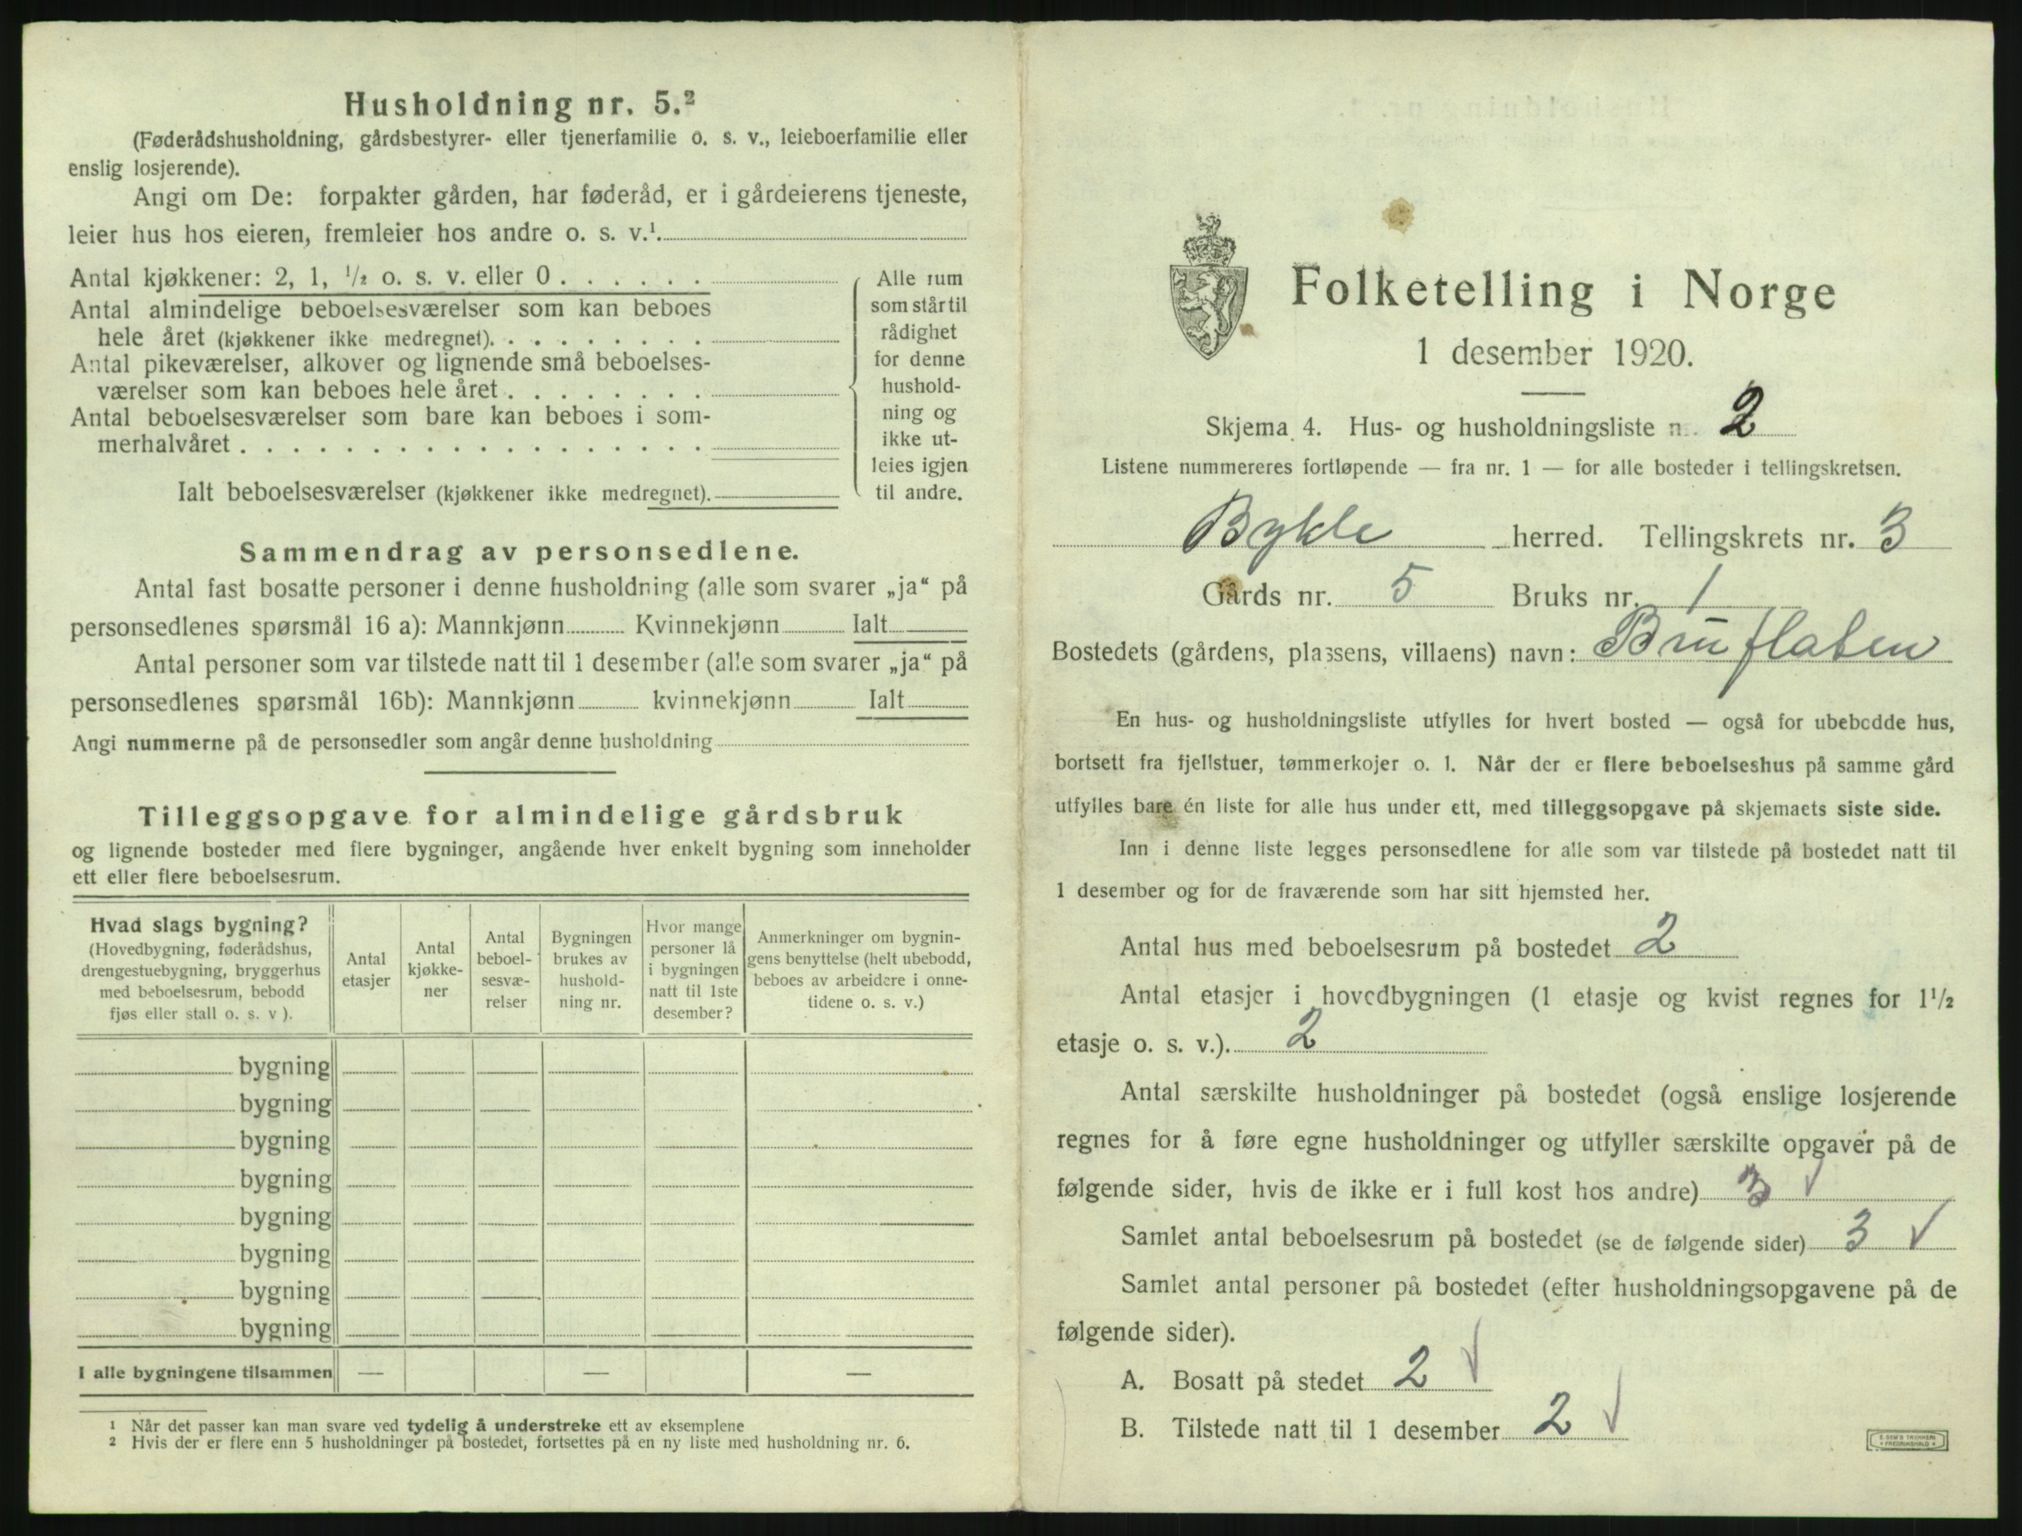 Husholdning nr. 5.²
(Føderådshusholdning, gårdsbestyrer- eller tjenerfamilie o. s. v., leieboerfamilie eller
enslig losjerende).
Angi om De: forpakter gården, har føderåd, er i gårdeierens tjeneste,
leier hus hos eieren, fremleier hos andre o. s. v.¹.
Antal kjøkkener: 2, 1, ½ o. s. v. eller 0 . . . . . .
Antal almindelige beboelsesværelser som kan beboes
hele året (kjøkkener ikke medregnet). . . . . . . . .
Antal pikeværelser, alkover og lignende små beboelses-
værelser som kan beboes hele året . . . . . . . .
Antal beboelsesværelser som bare kan beboes i som-
merhalvåret . . . . . . . . . . . . . . . . . .
Ialt beboelsesværelser (kjøkkener ikke medregnet).
Alle rum
som står til
rådighet
for denne
hushold-
ning og
ikke ut-
leies igjen
til andre.
Sammendrag av personsedlene.
Antal fast bosatte personer i denne husholdning (alle som svarer „ja“ på
personsedlenes spørsmål 16 a): Mannkjønn Kvinnekjønn Ialt
Antal personer som var tilstede natt til 1 desember (alle som svarer „ja“ på
personsedlenes spørsmål 16b): Mannkjønn kvinnekjønn Ialt
Angi nummerne på de personsedler som angår denne husholdning
Tilleggsopgave for almindelige gårdsbruk
og lignende bosteder med flere bygninger, angående hver enkelt bygning som inneholder
ett eller flere beboelsesrum.
Hvad slags bygning?
(Hovedbygning, føderådshus,
drengestuebygning, bryggerhus
med beboelsesrum, bebodd
fjøs eller stall o. s. v ).
Antal
etasjer
Antal
kjøkke-
ner
Antal
beboel-
sesvæ-
relser
Bygningen
brukes av
hushold-
ning nr.
Hvor mange
personer lå
i bygningen
natt til 1ste
desember?
Anmerkninger om bygnin-
gens benyttelse (helt ubebodd,
beboes av arbeidere i onne-
tidene o. s. v.)
bygning
bygning
bygning
bygning
bygning
bygning
bygning
bygning
I alle bygningene tilsammen — — —
¹ Når det passer kan man svare ved tydelig å understreke ett av eksemplene
² Hvis der er flere enn 5 husholdninger på bostedet, fortsettes på en ny liste med husholdning nr. 6.
Folketelling i Norge
1 desember 1920.
Skjema 4. Hus- og husholdningsliste n. 2
Listene nummereres fortløpende — fra nr. 1 — for alle bosteder i tellingskretsen.
Bykle herred. Tellingskrets nr. 3
Gårds nr. 5 Bruks nr. 1
Bostedets (gårdens, plassens, villaens) navn: Bruflaten
En hus- og husholdningsliste utfylles for hvert bosted — også for ubebodde hus,
bortsett fra fjellstuer, tømmerkojer o. l. Når der er flere beboelseshus på samme gård
utfylles bare én liste for alle hus under ett, med tilleggsopgave på skjemaets siste side.
Inn i denne liste legges personsedlene for alle som var tilstede på bostedet natt til
1 desember og for de fraværende som har sitt hjemsted her.
Antal hus med beboelsesrum på bostedet 2
Antal etasjer i hovedbygningen (1 etasje og kvist regnes for 1½
etasje o. s. v.). 2
Antal særskilte husholdninger på bostedet (også enslige losjerende
regnes for å føre egne husholdninger og utfyller særskilte opgaver på de
følgende sider, hvis de ikke er i full kost hos andre) 3 √
Samlet antal beboelsesrum på bostedet (se de følgende sider) 3 √
Samlet antal personer på bostedet (efter husholdningsopgavene på de
følgende sider).
A. Bosatt på stedet 2 √
B. Tilstede natt til 1 desember 2 √